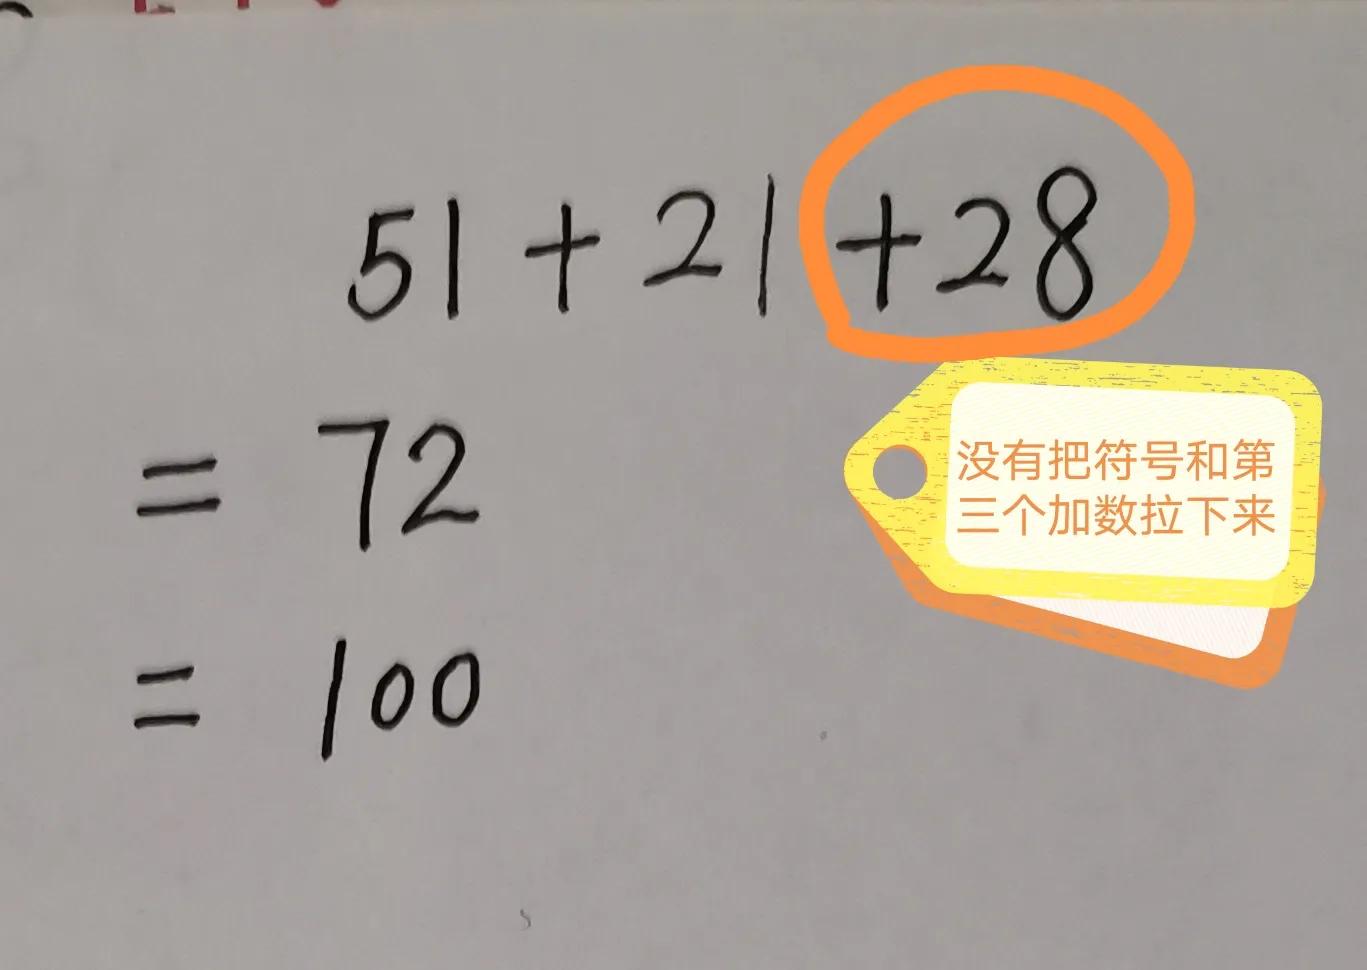 51+21+28
=72
=100
没有把符号和第
三个加数拉下来